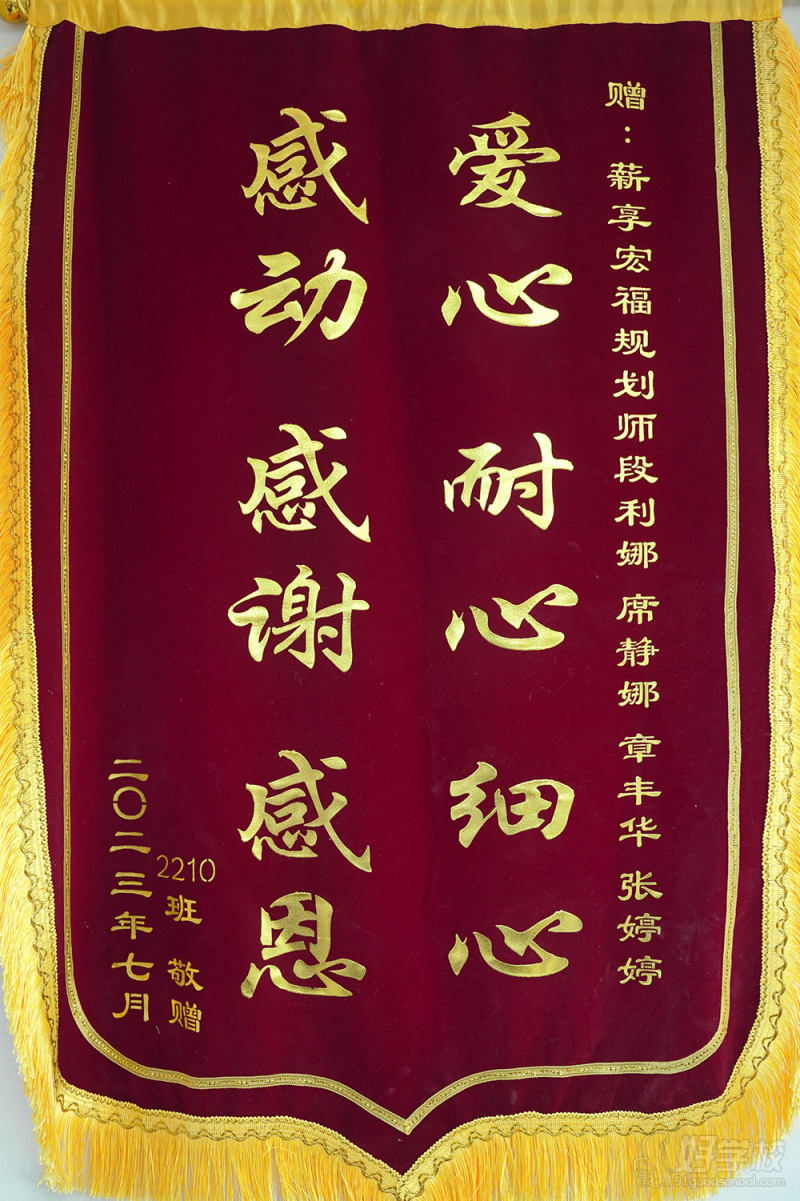 赠：薪享宏福规划师段利娜 席静娜 章丰华 张婷婷
爱心 耐心 细心
感动 感谢 感恩
2210班 敬赠
二〇二三年七月
好学校
91goodschool.com